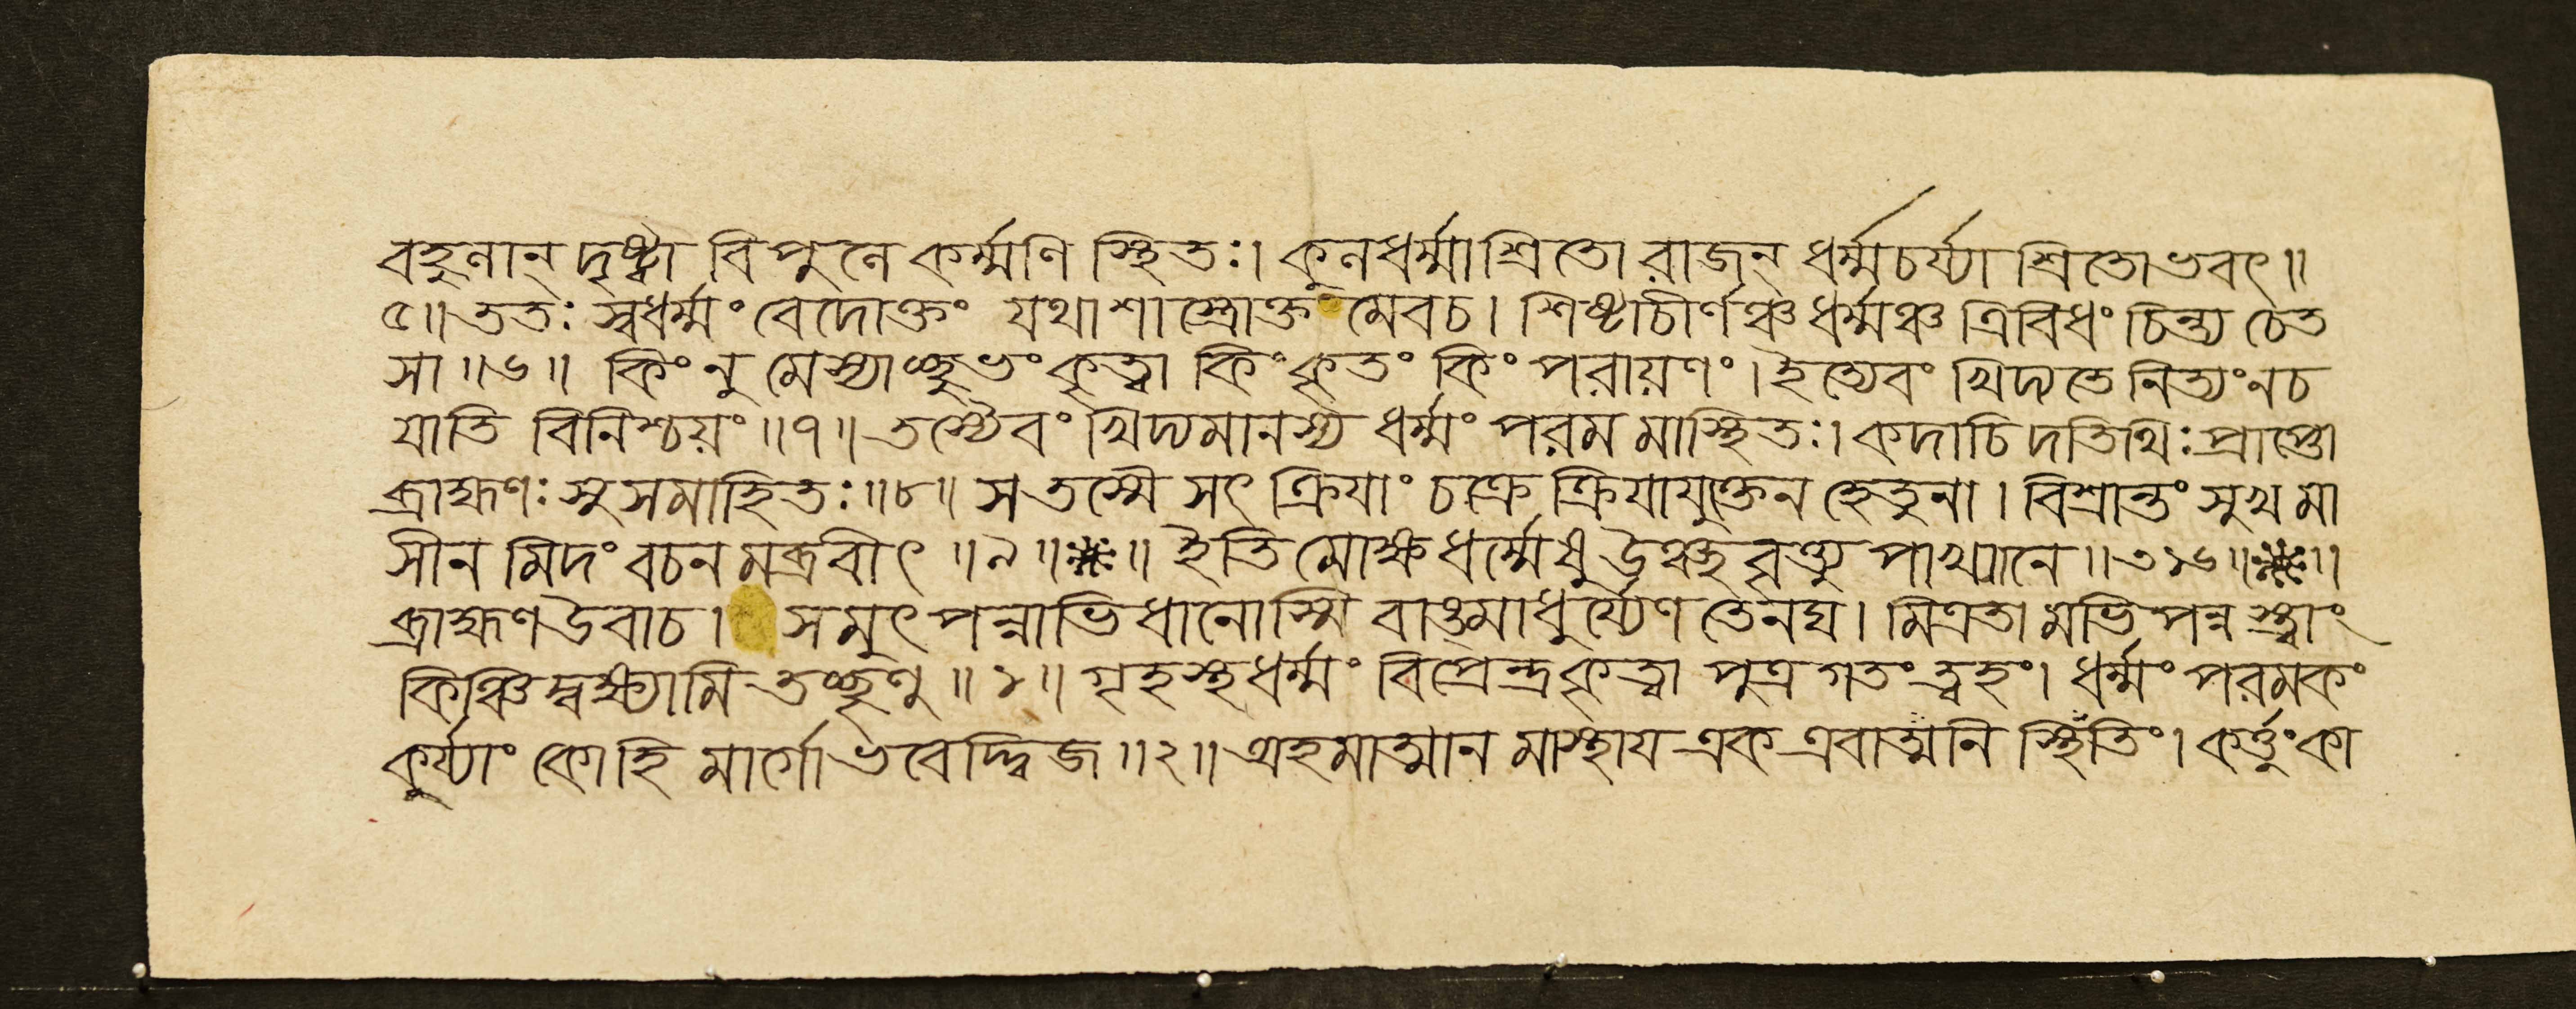 বহুলান্ দৃষ্ট্বা বিপুলে কর্ম্মণি স্থিতঃ। কুলধর্ম্মাশ্রিতো রাজন্ ধর্ম্মচর্য্যাশ্রিতোভবৎ॥
৫॥ ততঃ স্বধর্ম্মং বেদোক্তং যথাশাস্ত্রোক্তমেবচ। শিষ্টাচীর্ণঞ্চধর্ম্মঞ্চ ত্রিবিধং চিন্ত্য চেত
সা॥৬॥ কিং নু মেস্যাচ্ছুভংকৃত্বা কিংকৃতং কিং পরায়ণং। ইত্যেবং খিদ্যতে নিত্যংনচ
যাতি বিনিশ্চয়ং॥৭॥ তস্যৈবং খিদ্যমানস্য ধর্ম্মং পরমমাস্থিতঃ। কদাচিদতিথিঃ প্রাপ্তো
ব্রাহ্মণঃ সুসমাহিতঃ॥৮॥ সতস্মৈ সৎক্রিযাং চক্রে ক্রিযাযুক্তেন হেতুনা। বিশ্রান্তং সুখমা
সীনমিদং বচনমব্রবীৎ॥৯॥※॥ ইতি মোক্ষধর্ম্মেষু উঞ্ছবৃত্ত্যুপাখ্যানে॥৩১৬॥※॥
ব্রাহ্মণ উবাচ। সমুৎপন্নাভিধানোস্মি বাঙ্মাধুর্য্যেণ তেনঘ। মিত্রতামভিপন্নস্ত্বাং
কিঞ্চিদ্বক্ষ্যামি তচ্ছৃণু॥১॥ গৃহস্থধর্ম্মং বিপ্রেন্দ্রকৃত্বা পুত্রগতংত্বহং। ধর্ম্মং পরমকং
কুর্য্যাং কোহি মার্গোভবেদ্দ্বিজ॥২॥ অহমাত্মানমাস্থায এক এবাত্মনি স্থিতিং। কর্ত্তুংকা